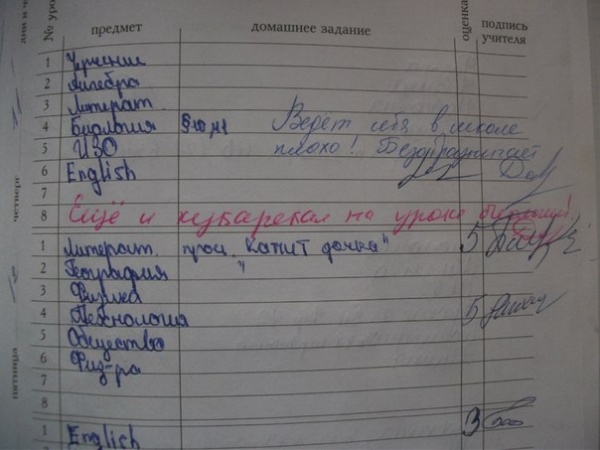 дни и ч
№ уро предмет домашнее задание оценка подпись учителя
1 Черчение
2 Алгебра
3 Литерат.
4 Биология §10 Ведёт себя в школе
5 ИЗО плохо! Безобразничает
6 English
7
четверг
8 Ещё и кукарекал на уроке биологии!
1 Литерат. проч. "Капит дочка" 5
2 География "
3 Физика
4 Технология 5
5 Общество
6 Физ-ра
7
пятница
8
1 English 3